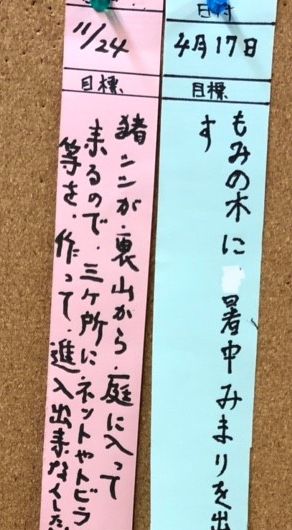 日付
4月17日
目標
もみの木に 暑中みまりを出
す
11/24
目標
猪シシが、裏山から、庭に入って
来るので、三ヶ所に、ネットやトビラ
等を、作って、進入出来なくした